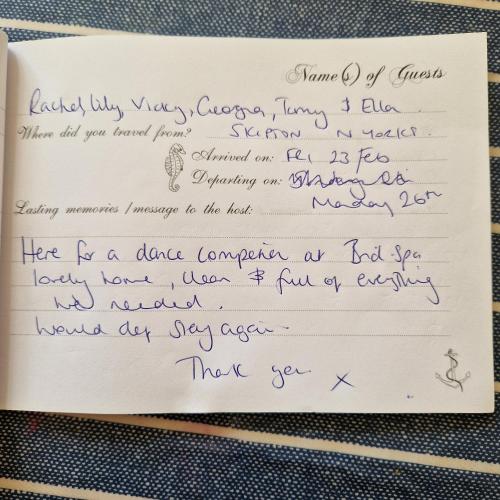 Name(s) of Guests
Rachel, Lily, Vicky, Georgina, Tammy & Ella.
Where did you travel from? SKIPTON N YORKS.
Arrived on: FRI 23 Feb
Departing on:
Monday 26th
Lasting memories / message to the host:
Here for a dance competion at Brid Spa
lovely home, clean & full of everything
we needed.
Would def stay again.
Thank you x